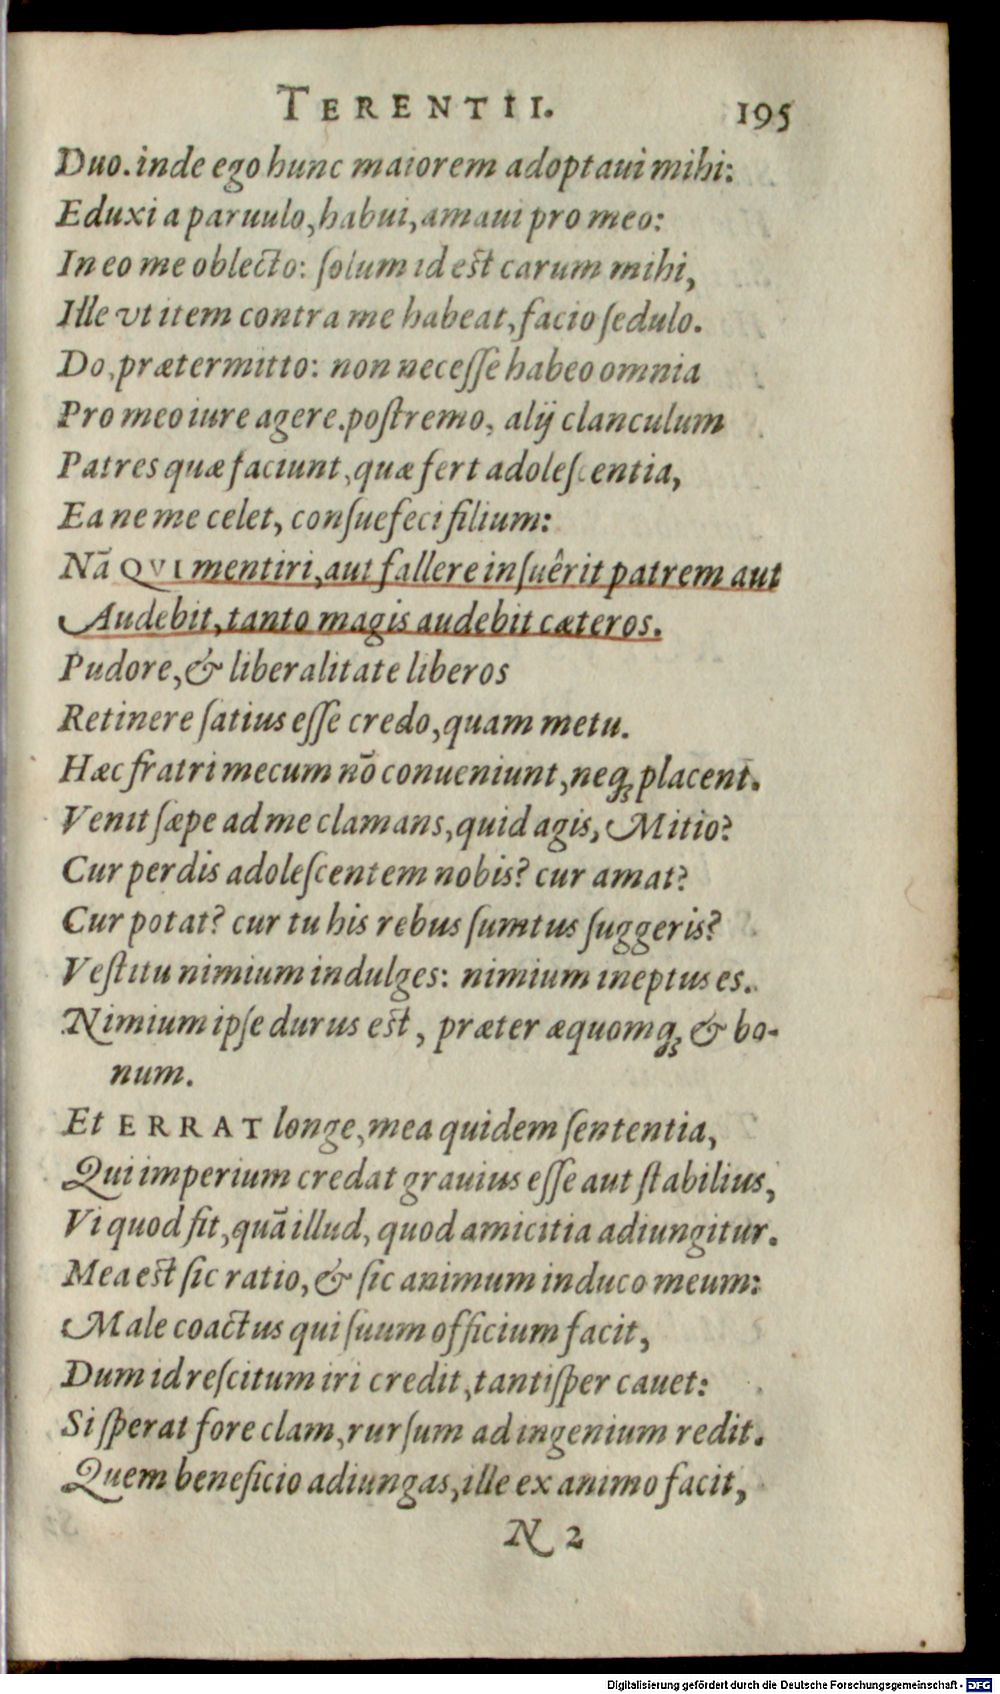 TERENTII. 195
Duo. inde ego hunc maiorem adoptaui mihi:
Eduxi a paruulo, habui, amaui pro meo:
In eo me oblecto: ſolum id est carum mihi,
Ille vt item contra me habeat, facio ſedulo.
Do, prætermitto: non neceſſe habeo omnia
Pro meo iure agere. poſtremo, alij clanculum
Patres quæ faciunt, quæ fert adoleſcentia,
Ea ne me celet, conſuefeci filium:
Nā QVI mentiri, aut fallere inſuêrit patrem aut
Audebit, tanto magis audebit cæteros.
Pudore, & liberalitate liberos
Retinere ſatius eſſe credo, quam metu.
Hæc fratri mecum nō conueniunt, neqꝫ placent.
Venit ſæpe ad me clamans, quid agis, Mitio?
Cur perdis adoleſcentem nobis? cur amat?
Cur potat? cur tu his rebus ſumtus ſuggeris?
Veſtitu nimium indulges: nimium ineptus es.
Nimium ipſe durus est, præter æquomqꝫ & bo-
num.
Et ERRAT longe, mea quidem ſententia,
Qui imperium credat grauius eſſe aut ſtabilius,
Vi quod fit, quā illud, quod amicitia adiungitur.
Mea est ſic ratio, & ſic animum induco meum:
Male coactus qui ſuum officium facit,
Dum id reſcitum iri credit, tantiſper cauet:
Si ſperat fore clam, rurſum ad ingenium redit.
Quem beneficio adiungas, ille ex animo facit,
N 2
Digitalisierung gefördert durch die Deutsche Forschungsgemeinschaft - DFG